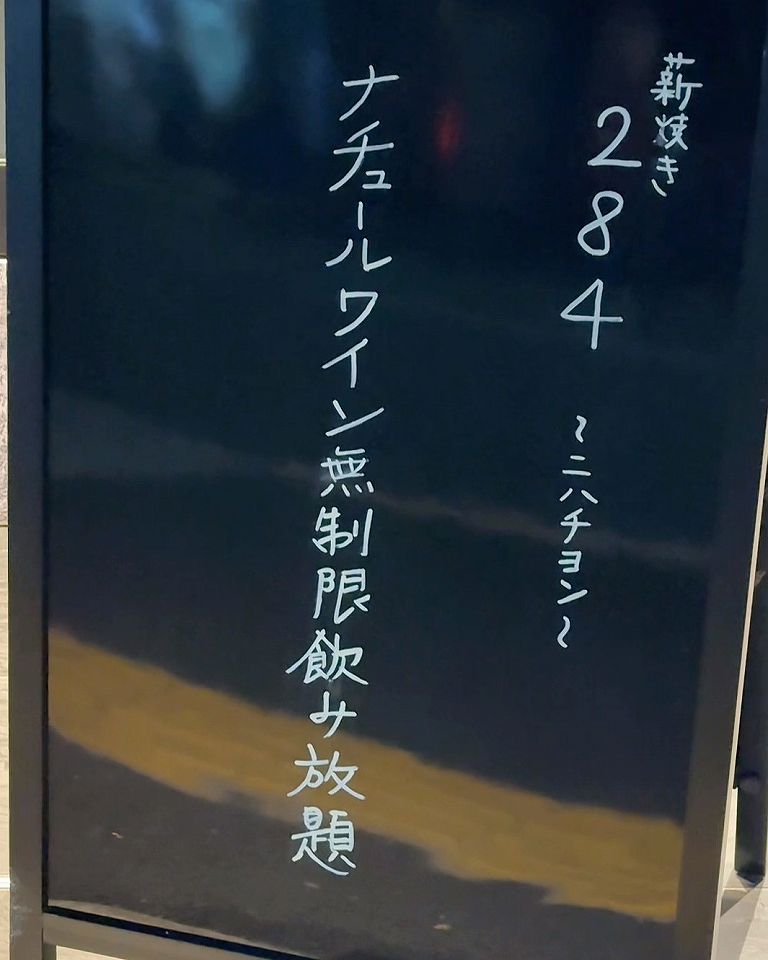 薪焼き
284 ~ニハチヨン~
ナチュールワイン無制限飲み放題